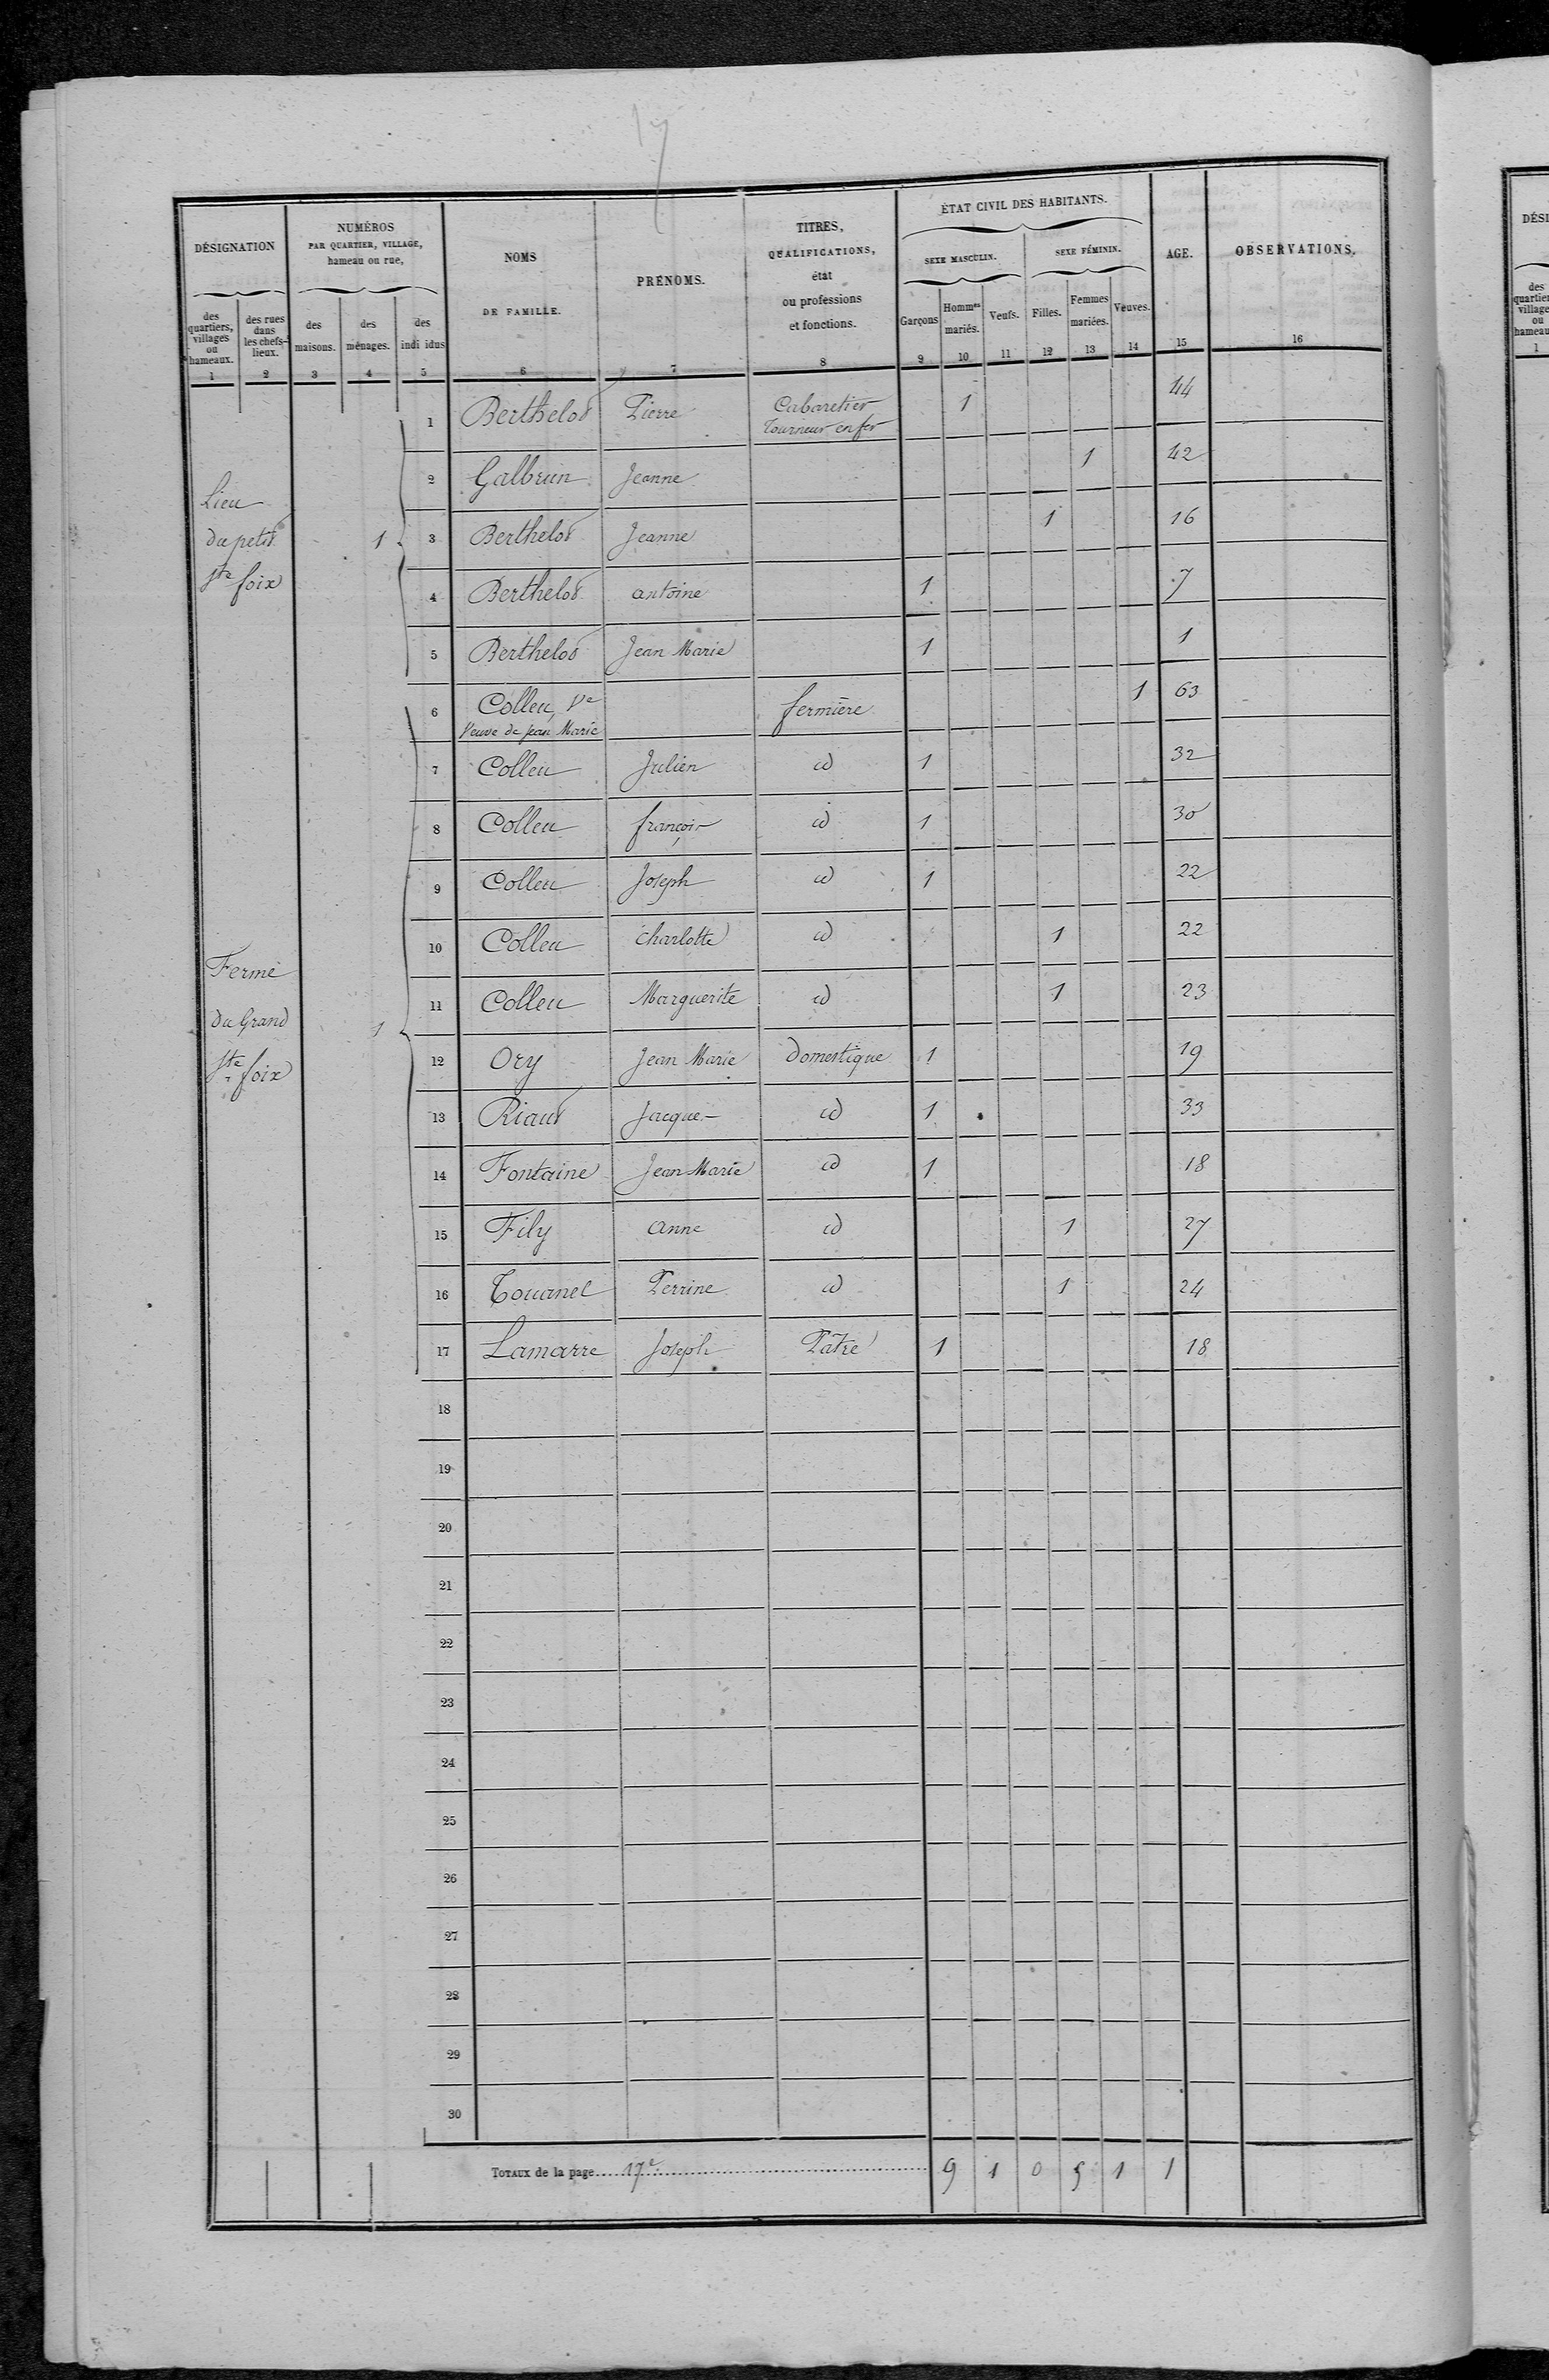 17
DÉSIGNATION
NUMÉROS
PAR QUARTIER, VILLAGE,
hameau ou rue,
NOMS
DE FAMILLE.
PRÉNOMS.
TITRES,
QUALIFICATIONS,
état
ou professions
et fonctions.
ÉTAT CIVIL DES HABITANTS.
SEXE MASCULIN.
SEXE FÉMININ.
AGE.
OBSERVATIONS.
des
quartiers,
villages
ou
hameaux.
des rues
dans
les chefs-
lieux.
des
maisons.
des
ménages.
des
indi idus
Garçons
Hommes
mariés.
Veufs.
Filles.
Femmes
mariées.
Veuves.
1 2 3 4 5 6 7 8 9 10 11 12 13 14 15 16
Lieu
du petit
Ste foix
1
1 Berthelot Pierre Cabaretier
Tourneur en fer 1 44
2 Galbrun Jeanne 1 42
3 Berthelot Jeanne 1 16
4 Berthelot antoine 1 7
5 Berthelot Jean Marie 1 1
Ferme
du Grand
Ste foix
1
6 Colleu, Ve
Veuve de Jean Marie fermière 1 63
7 Colleu Julien id 1 32
8 Colleu françois id 1 30
9 Colleu Joseph id 1 22
10 Colleu Charlotte id 1 22
11 Colleu Marguerite id 1 23
12 Ory Jean Marie domestique 1 19
13 Riaut Jacques id 1 33
14 Fontaine Jean Marie id 1 18
15 Fily anne id 1 27
16 Touanel Perrine id 1 24
17 Lamarre Joseph Pâtre 1 18
18
19
20
21
22
23
24
25
26
27
28
29
30
TOTAUX de la page 17e 9 1 0 5 1 1
DÉSI
des
quartier
village
ou
hameau
1